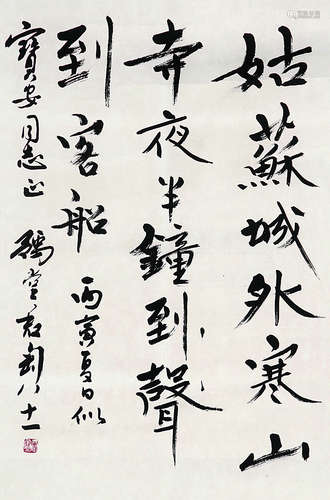 姑蘇城外寒山
寺夜半鐘到聲
到客船 丙寅夏日似
寶安同志正 豫堂君匋八十一